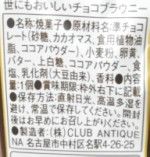 世にもおいしいチョコブラウニー
●名称:焼菓子●原材料名:準チョコ
レート(砂糖、カカオマス、食用植物油
脂、ココアパウダー)、小麦粉、卵、
バター、上白糖、ココアパウダー、食
塩、乳化剤(大豆由来)、香料●内容
量:1個●賞味期限:枠外下部に記載
●保存方法:直射日光、高温多湿を
避けて保存してください。開封後は
お早めにお召し上がりください。
●製造者:(株)CLUB ANTIQUE
NA 名古屋市中村区名駅4-26-25